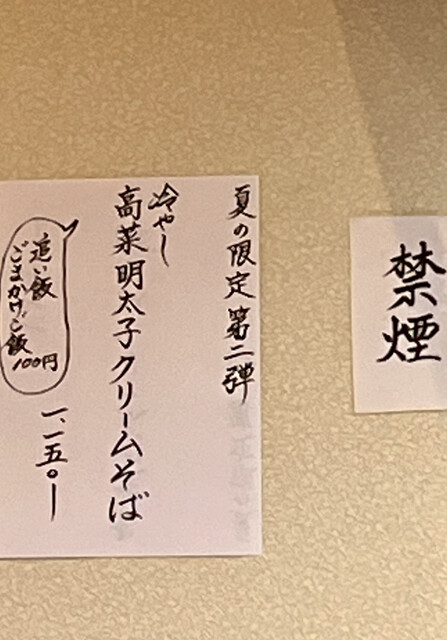 禁煙
夏の限定第二弾
冷やし
高菜明太子クリームそば
一、一五〇ー
追い飯
ごまかけご飯
100円